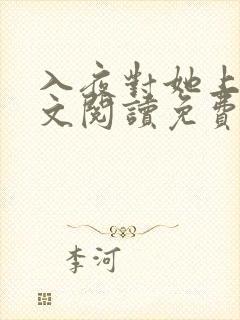 入夜對她上
文閱讀免費
李河